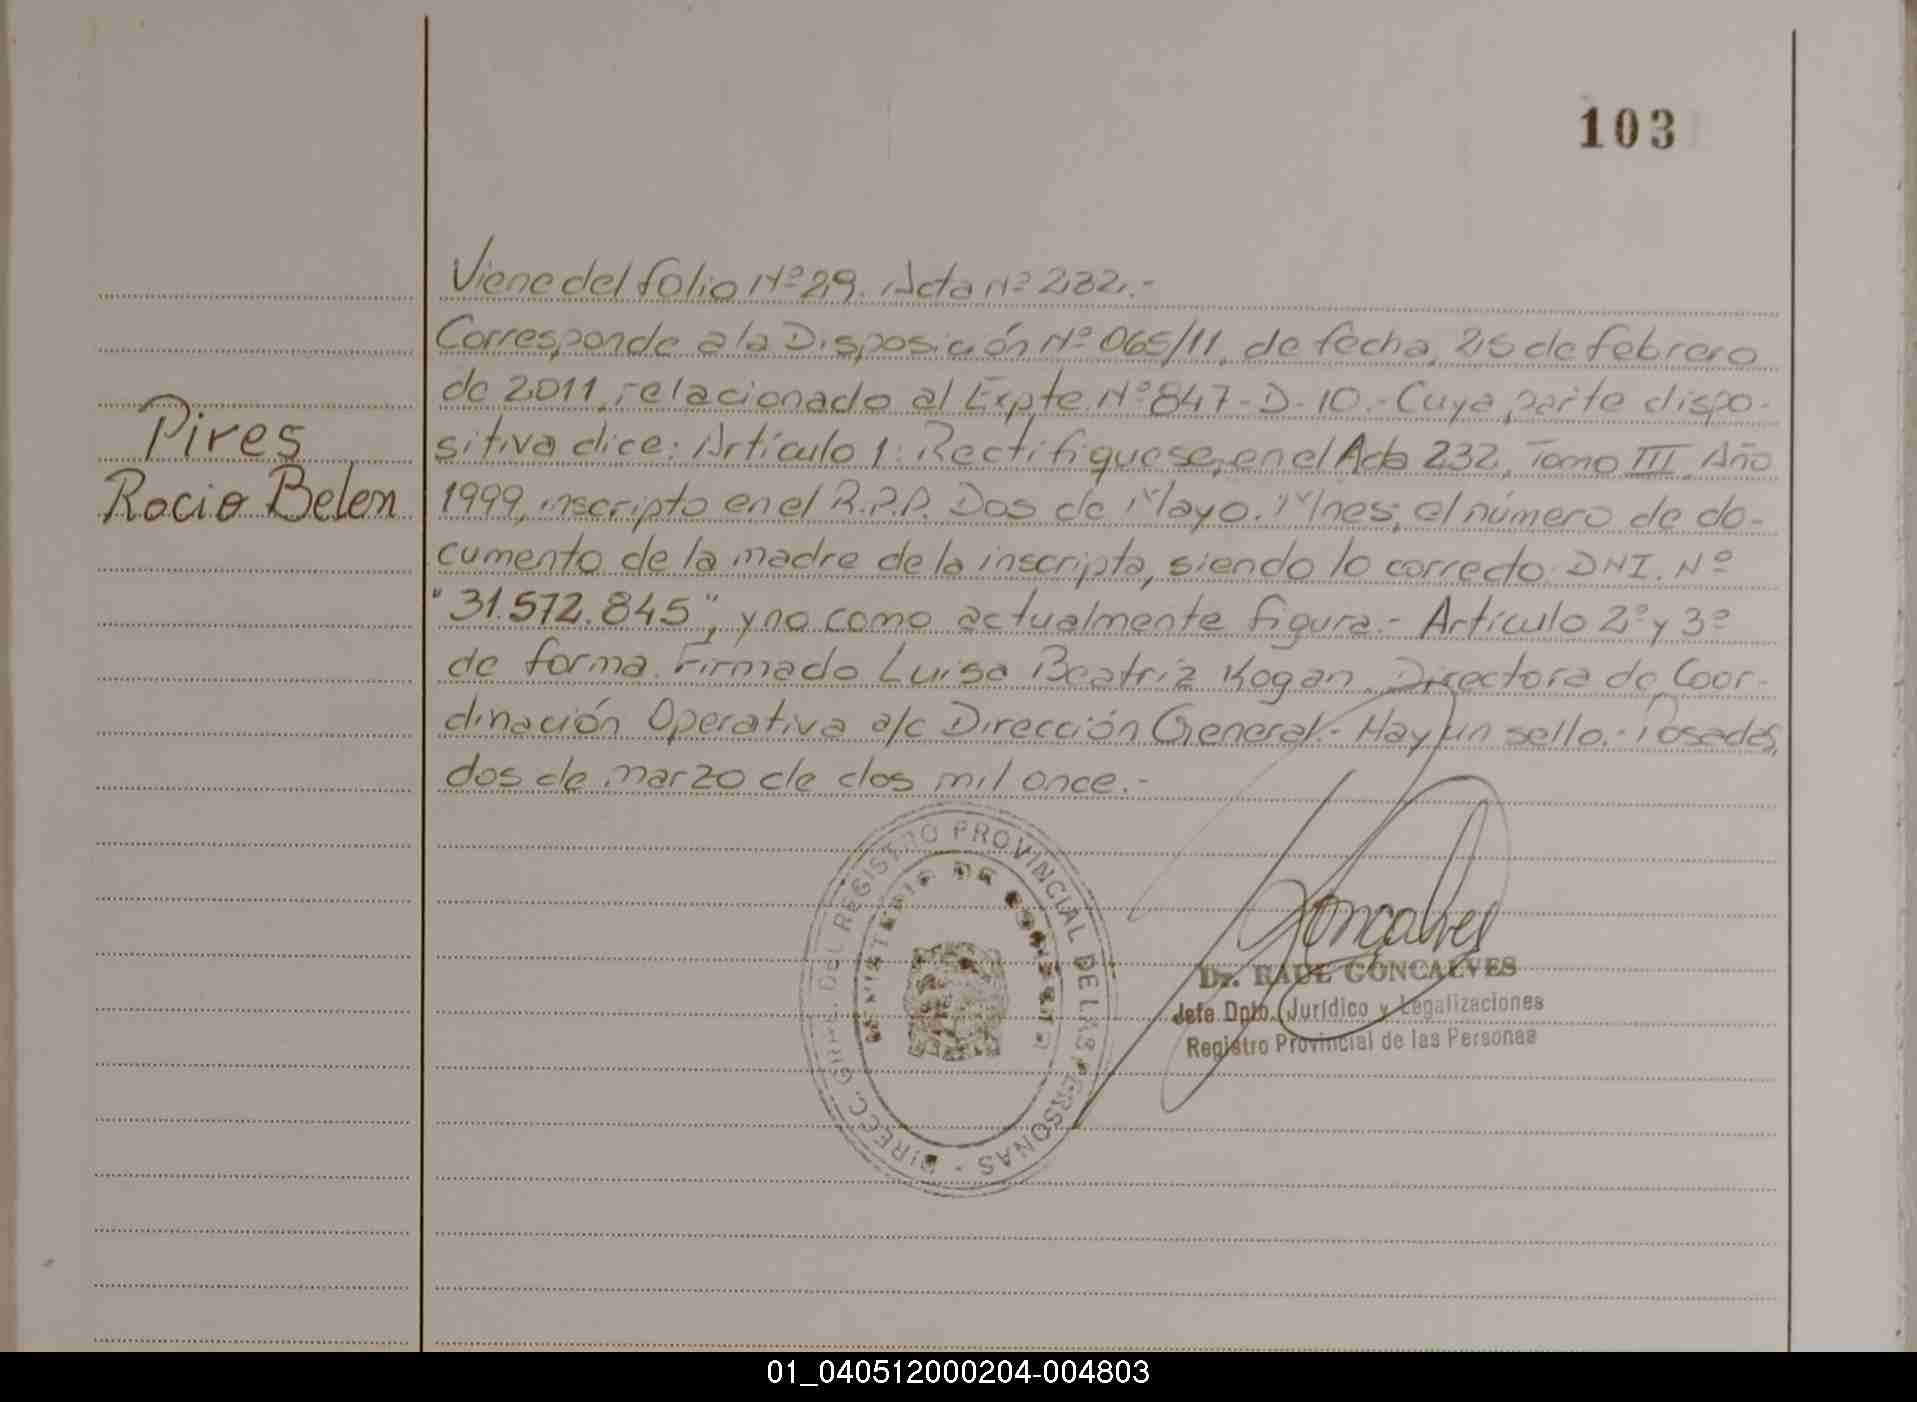 103
Viene del folio Nº 29. Acta Nº 232.-
Corresponde a la Disposición Nº 065/11, de fecha, 25 de febrero
de 2011, relacionado al Expte. Nº 847-D-10.- Cuya parte dispo-
sitiva dice: Artículo 1: Rectifíquese, en el Acta 232, Tomo III, Año
1999, inscripto en el R.P.P. Dos de Mayo. Mnes; el número de do-
cumento de la madre de la inscripta, siendo lo correcto DNI. Nº
"31.572.845", y no como actualmente figura.- Artículo 2º y 3º
de forma. Firmado Luisa Beatriz Kogan. Directora de Coor-
dinación Operativa a/c Dirección General.- Hay un sello.- Posadas,
dos de marzo de dos mil once.-
Pires
Rocio Belen
DIRECC. GRAL. DEL REGISTRO PROVINCIAL DE LAS PERSONAS -
MINISTERIO DE GOBIERNO
Goncalves
Dr. RAUL GONCALVES
Jefe Dpto. Jurídico y Legalizaciones
Registro Provincial de las Personas
01_040512000204-004803